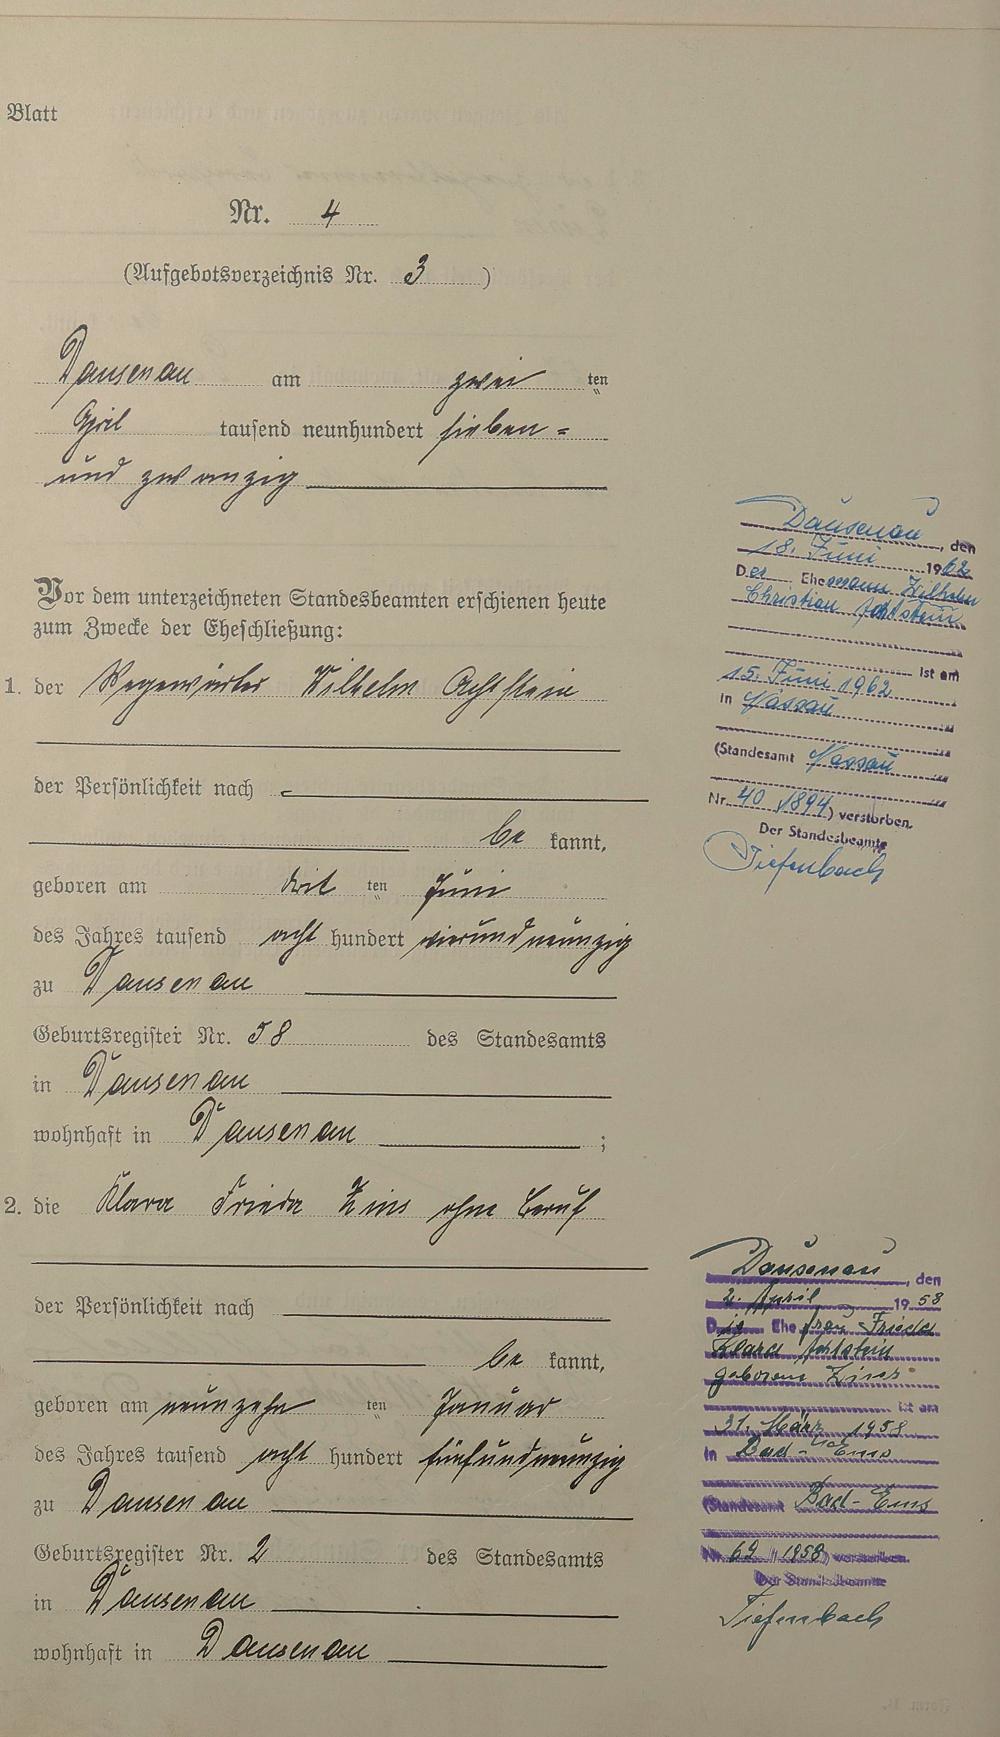 Blatt
Nr. 4
(Aufgebotsverzeichnis Nr. 3)
Dausenau am zwei ten
April tausend neunhundert sieben-
und zwanzig
Vor dem unterzeichneten Standesbeamten erschienen heute
zum Zwecke der Eheschließung:
1. der Wegewärter Wilhelm Achtstein
der Persönlichkeit nach
be kannt,
geboren am drit ten Juni
des Jahres tausend acht hundert vierundneunzig
zu Dausenau
Geburtsregister Nr. 58 des Standesamts
in Dausenau
wohnhaft in Dausenau ;
2. die Klara Frieda Zins ohne Beruf
der Persönlichkeit nach
be kannt,
geboren am neunzehn ten Januar
des Jahres tausend acht hundert fünfundneunzig
zu Dausenau
Geburtsregister Nr. 2 des Standesamts
in Dausenau
wohnhaft in Dausenau
Dausenau, den
18. Juni 1962
Der Ehemann Wilhelm
Christian Achtstein
ist am
15. Juni 1962
in Nassau
(Standesamt Nassau
Nr. 40 1894) verstorben.
Der Standesbeamte
Tiefenbach
Dausenau, den
2. April 1958
Die Ehefrau Frieda
Klara Achtstein
geborene Zins
ist am
31. März 1958
in Bad-Ems
(Standesamt Bad-Ems
Nr. 69 1958) verstorben.
Der Standesbeamte
Tiefenbach